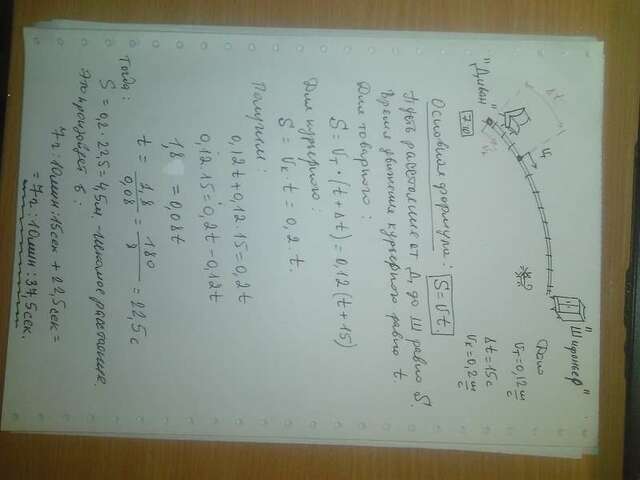 "Диван"
"Шифоньер"
7ч
Δt
Ц
Vт
Дано
Vт=0,12 м/с
Δt=15с
Vк=0,2 м/с
Основная формула: S=Vt.
Пусть расстояние от Д до Ш равно S.
Время движения курьерного равно t.
Для товарного:
S=Vт·(t+Δt)=0,12(t+15)
Для курьерного:
S=Vк·t=0,2·t.
Получим:
0,12t+0,12·15=0,2t
0,12·15=0,2t-0,12t
1,8=0,08t
t=1,8/0,08=180/8=22,5с
Тогда:
S=0,2·22,5=4,5м - искомое расстояние.
Это произойдёт в:
7ч:10мин:15сек+22,5сек=
=7ч:10мин:37,5сек.